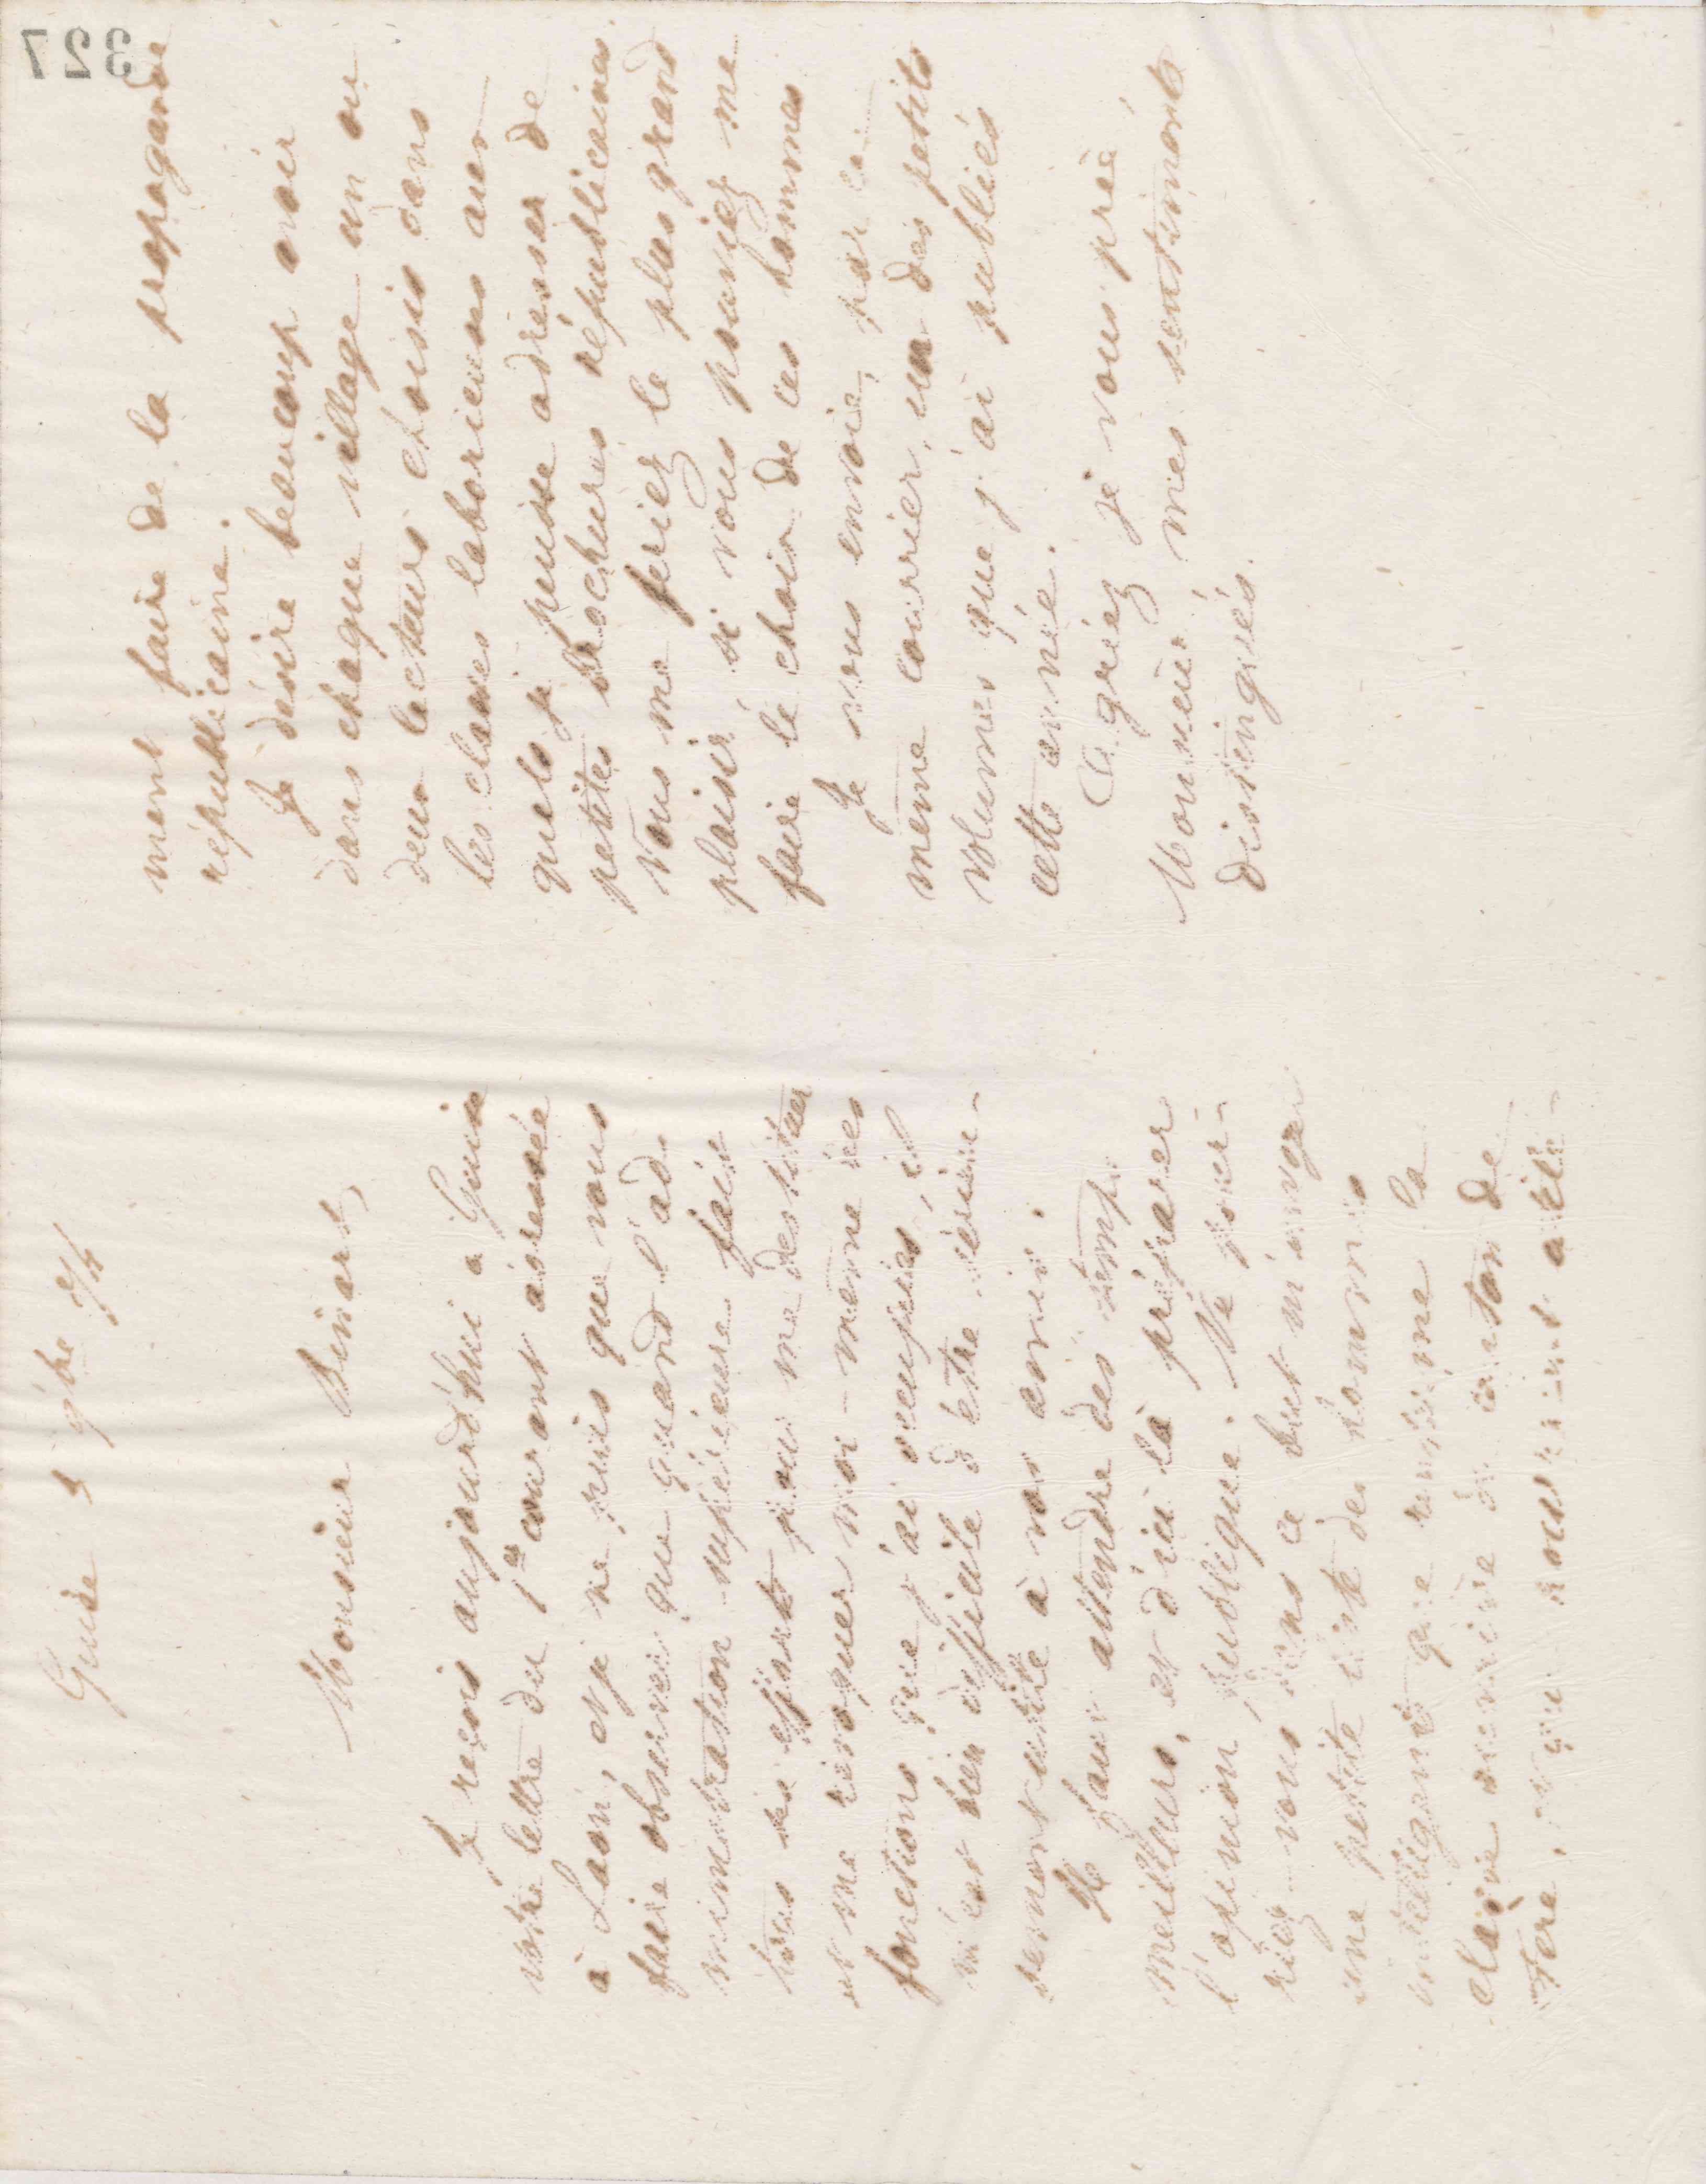 Guise 2 9bre 74
Monsieur Binart,
Je reçois aujourd'hui à Guise
votre lettre du 1er courant adressée
à Laon, et je ne puis que vous
faire observer que quand l'ad-
ministration supérieure fait
tous ses efforts pour me destituer
et me révoquer moi-même des
fonctions que j'ai occupées, il
m'est bien difficile d'être sérieu-
sement utile à nos amis.
Il faut attendre des temps
meilleurs, et d'ici là préparer
l'opinion publique. Ne pour-
riez-vous dans ce but m'envoyer
une petite liste des hommes
intelligents que renferme la
classe ouvrière du canton de
et qui pourraient utile-
ment faire de la propagande
républicaine.
Je désire beaucoup avoir
dans chaque village un ou
deux lecteurs choisis dans
les classes laborieuses aux
quels je puisse adresser de
petites brochures républicaines.
Vous me feriez le plus grand
plaisir si vous pouviez me
faire le choix de ces hommes
Je vous envoie, par ce
même courrier, un des petits
volumes que j'ai publiés
cette année.
Agréez je vous prie
Monsieur, mes sentiments
distingués.
327